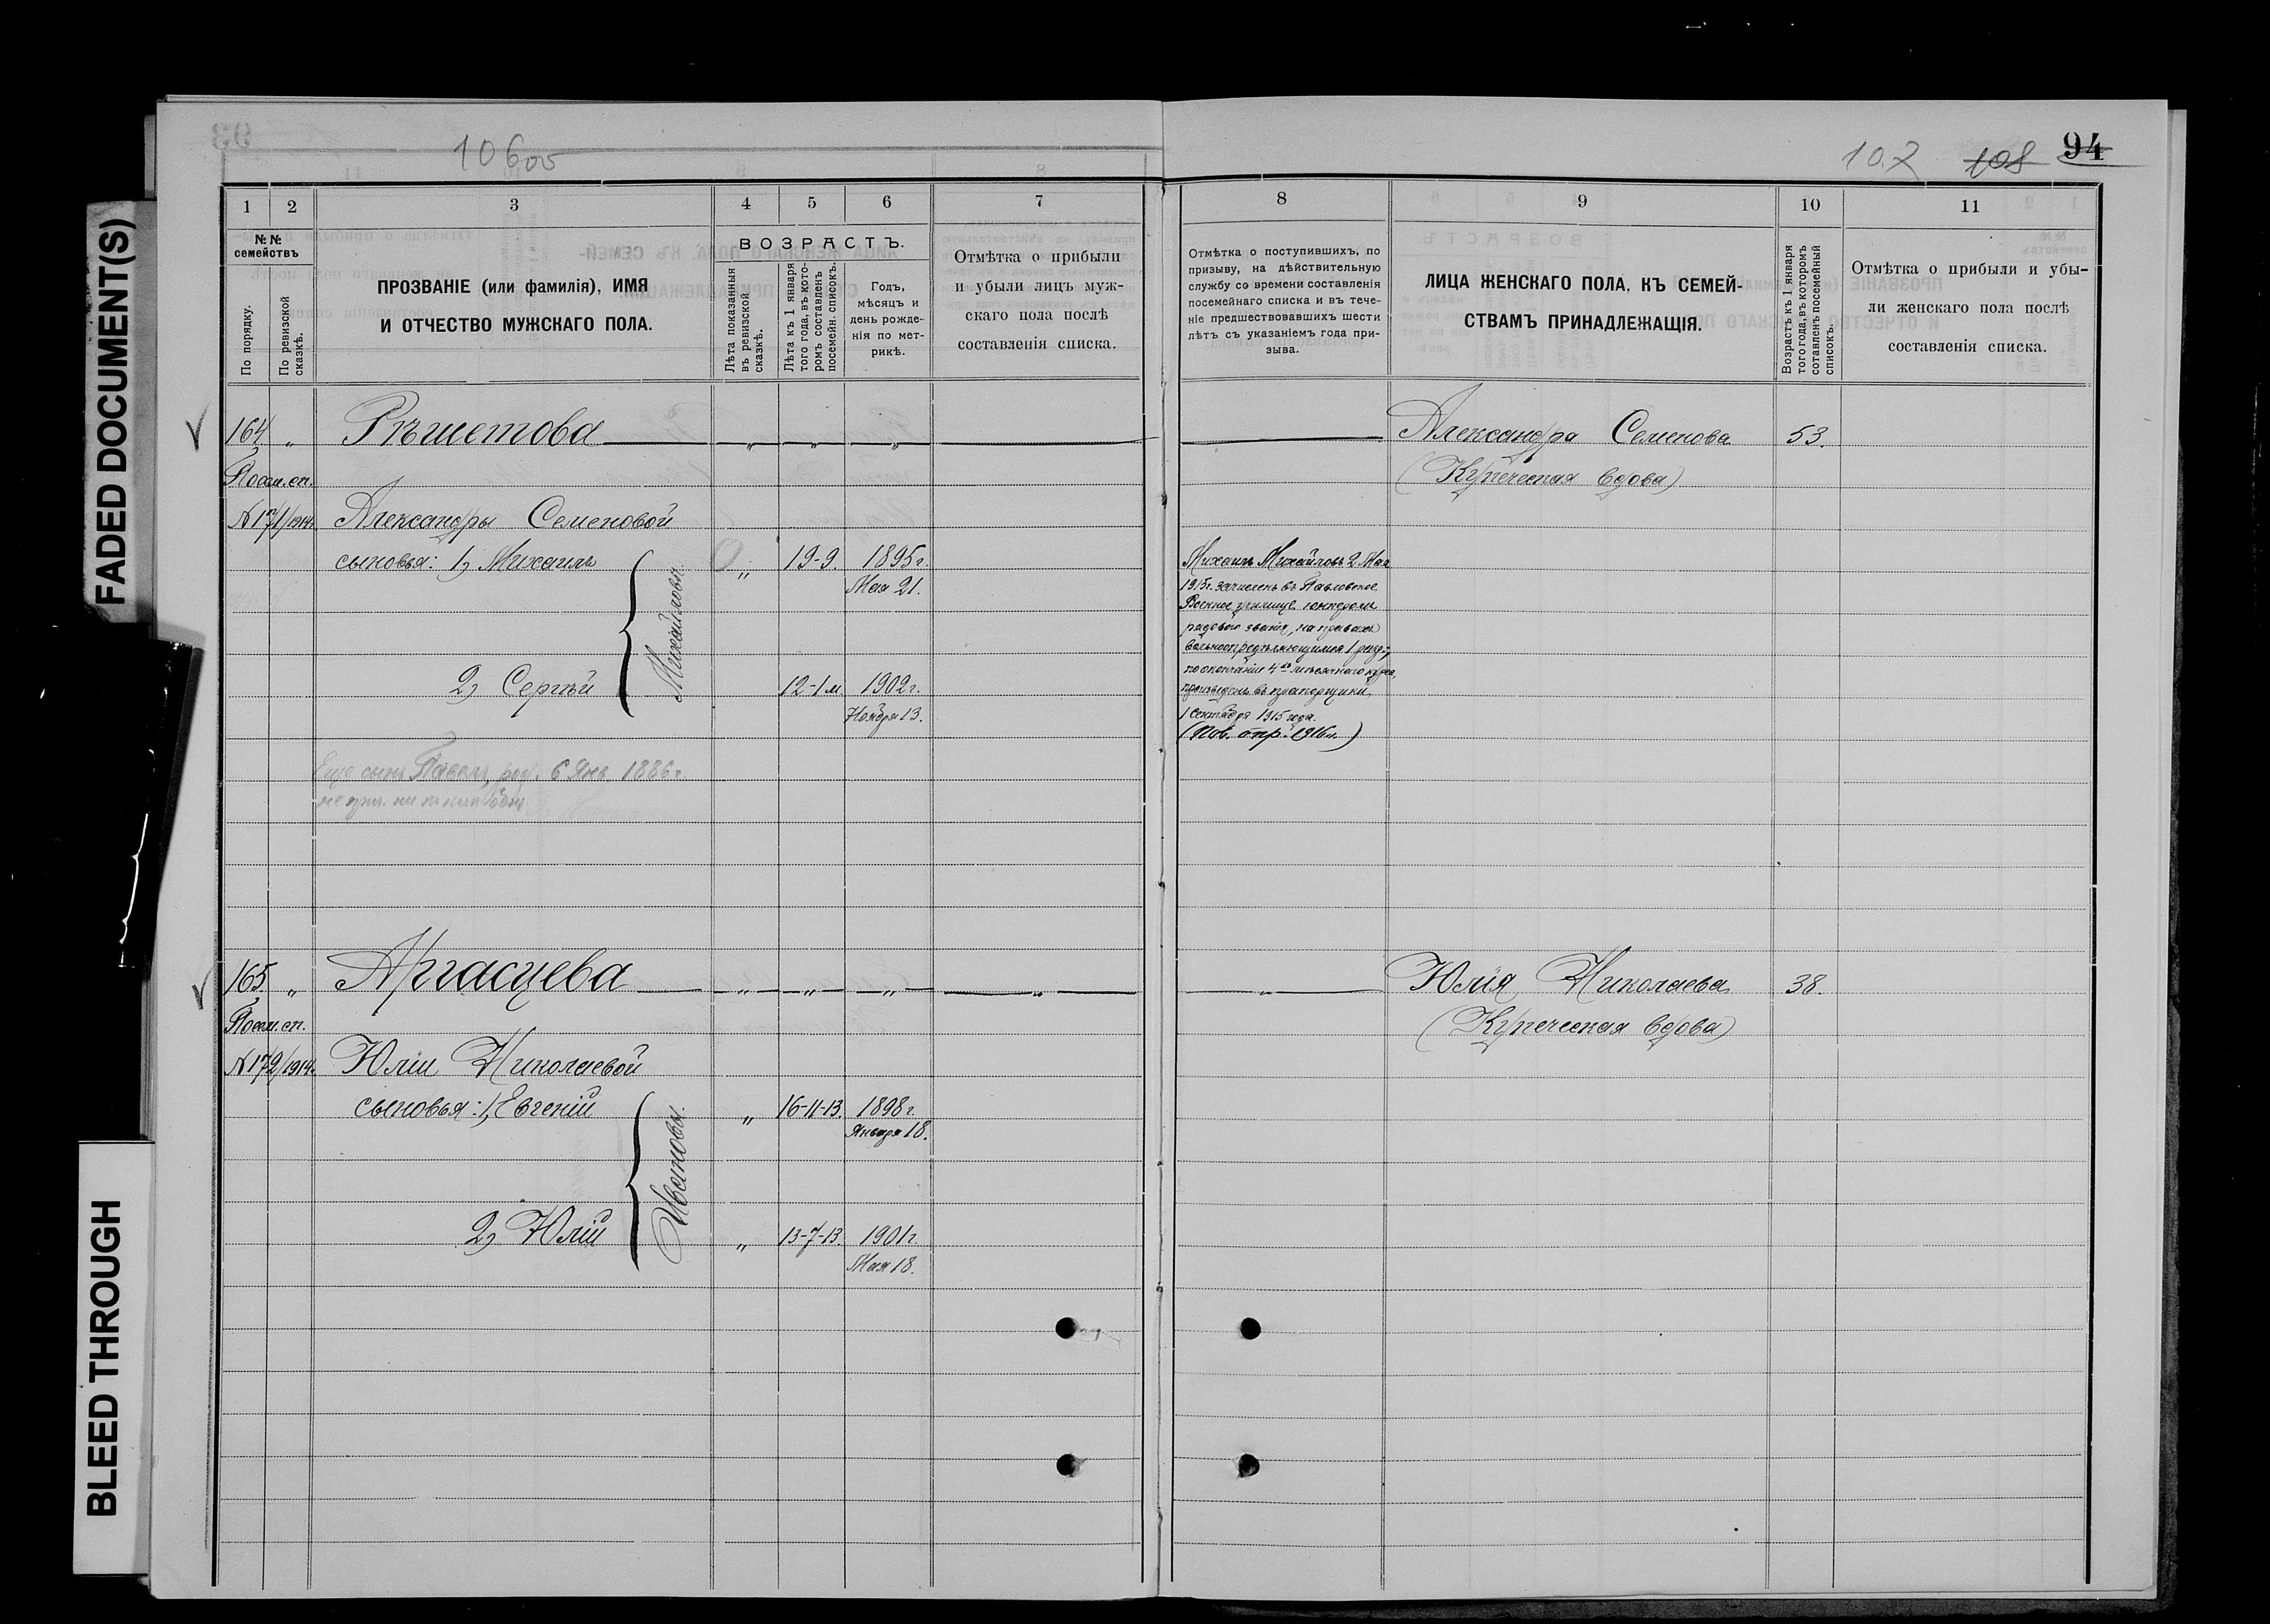 FADED DOCUMENT(S)
BLEED THROUGH
93
106об
107 108 94
1 2 3 4 5 6 7
№№ семействъ
По порядку.
По ревизской сказкѣ.
ПРОЗВАНІЕ (или фамилія), ИМЯ
И ОТЧЕСТВО МУЖСКАГО ПОЛА.
ВОЗРАСТЪ.
Лѣта показанныя въ ревизской сказкѣ.
Лѣта къ 1 января того года, въ кото-ромъ составленъ посемейн. списокъ.
Годъ,
мѣсяцъ и
день рожде-
нія по мет-
рикѣ.
Отмѣтка о прибыли
и убыли лицъ муж-
скаго пола послѣ
составленія списка.
8 9 10 11
Отмѣтка о поступившихъ, по
призыву, на дѣйствительную
службу со времени составленія
посемейнаго списка и въ тече-
ніе предшествовавшихъ шести
лѣтъ съ указаніемъ года при-
зыва.
ЛИЦА ЖЕНСКАГО ПОЛА, КЪ СЕМЕЙ-
СТВАМЪ ПРИНАДЛЕЖАЩІЯ.
Возрастъ къ 1 января того года, въ которомъ составленъ посемейный списокъ.
Отмѣтка о прибыли и убы-
ли женскаго пола послѣ
составленія списка.
164 „ Рѣшетова „ „ „
Посем. сп.
№171/1914г. Александры Семеновой
сыновья: 1, Михаилъ „ 19-9. 1895г.
Мая 21.
Михайловы.
2, Сергѣй 12-1м 1902г.
Ноября 13.
Еще сынъ Павелъ, род. 6 Янв. 1886г.
Александра Семенова 53.
(Купеческая вдова)
Михаилъ Михайловъ 2 Мая
1915г. зачисленъ въ Павловское
Военное училище юнкеромъ
рядового званія, на правахъ
вольноопредѣляющимся 1 разр.,
по окончаніи 4хъ мѣсячнаго курса,
произведенъ въ прапорщики,
1 Сентября 1915 года.
(Пов. отр. 1916г.)
165 „ Аргасцева „ „ „ „
Посем. сп.
№172/1914г. Юліи Николаевой
сыновья: 1, Евгеній „ 16-11-13. 1898г.
Января 18.
Ивановы.
2, Юлій „ 13-7-13. 1901г.
Мая 18.
„ Юлія Николаева 38.
(Купеческая вдова)